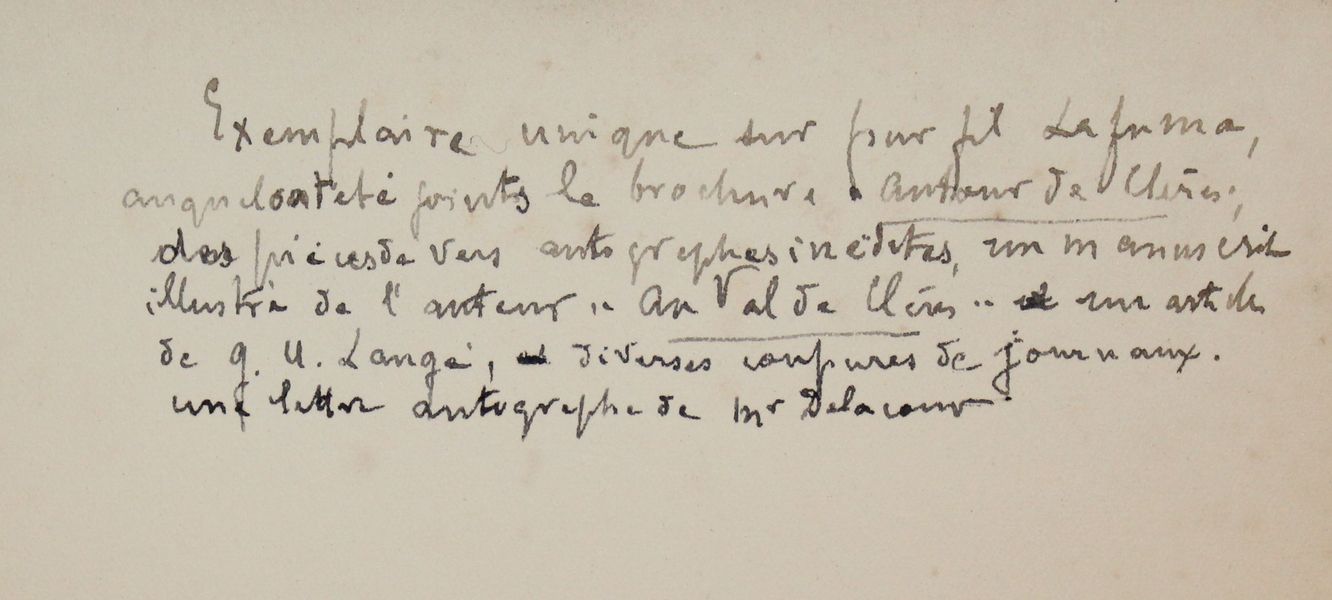 Exemplaire unique sur pur fil Lafuma,
auquel ont été joints la brochure "Autour de Clères",
des pièces de vers autographes inédites, un manuscrit
illustré de l'auteur "Au Val de Clères" et un article
de G. U. Langé, et diverses coupures de journaux.
une lettre autographe de Mr Delacour